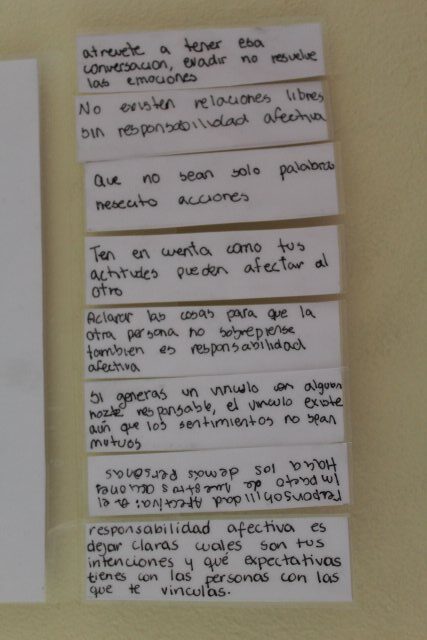 atrevete a tener esa
conversacion, evadir no resuelve
las emociones
No existen relaciones libres
sin responsabilidad afectiva
Que no sean solo palabras
nesecito acciones
Ten en cuenta como tus
actitudes pueden afectar al
otro
Aclarar las cosas para que la
otra persona no sobrepiense
tambien es responsabilidad
afectiva
Si generas un vinculo con alguien
hazte responsable, el vinculo existe
aún que los sentimientos no sean
mutuos
responsabilidad Afectiva: es el
Impacto de nuestras acciones
Hacia los demás Personas
responsabilidad afectiva es
dejar claras cuales son tus
intenciones y qué expectativas
tienes con las personas con las
que te vinculas.